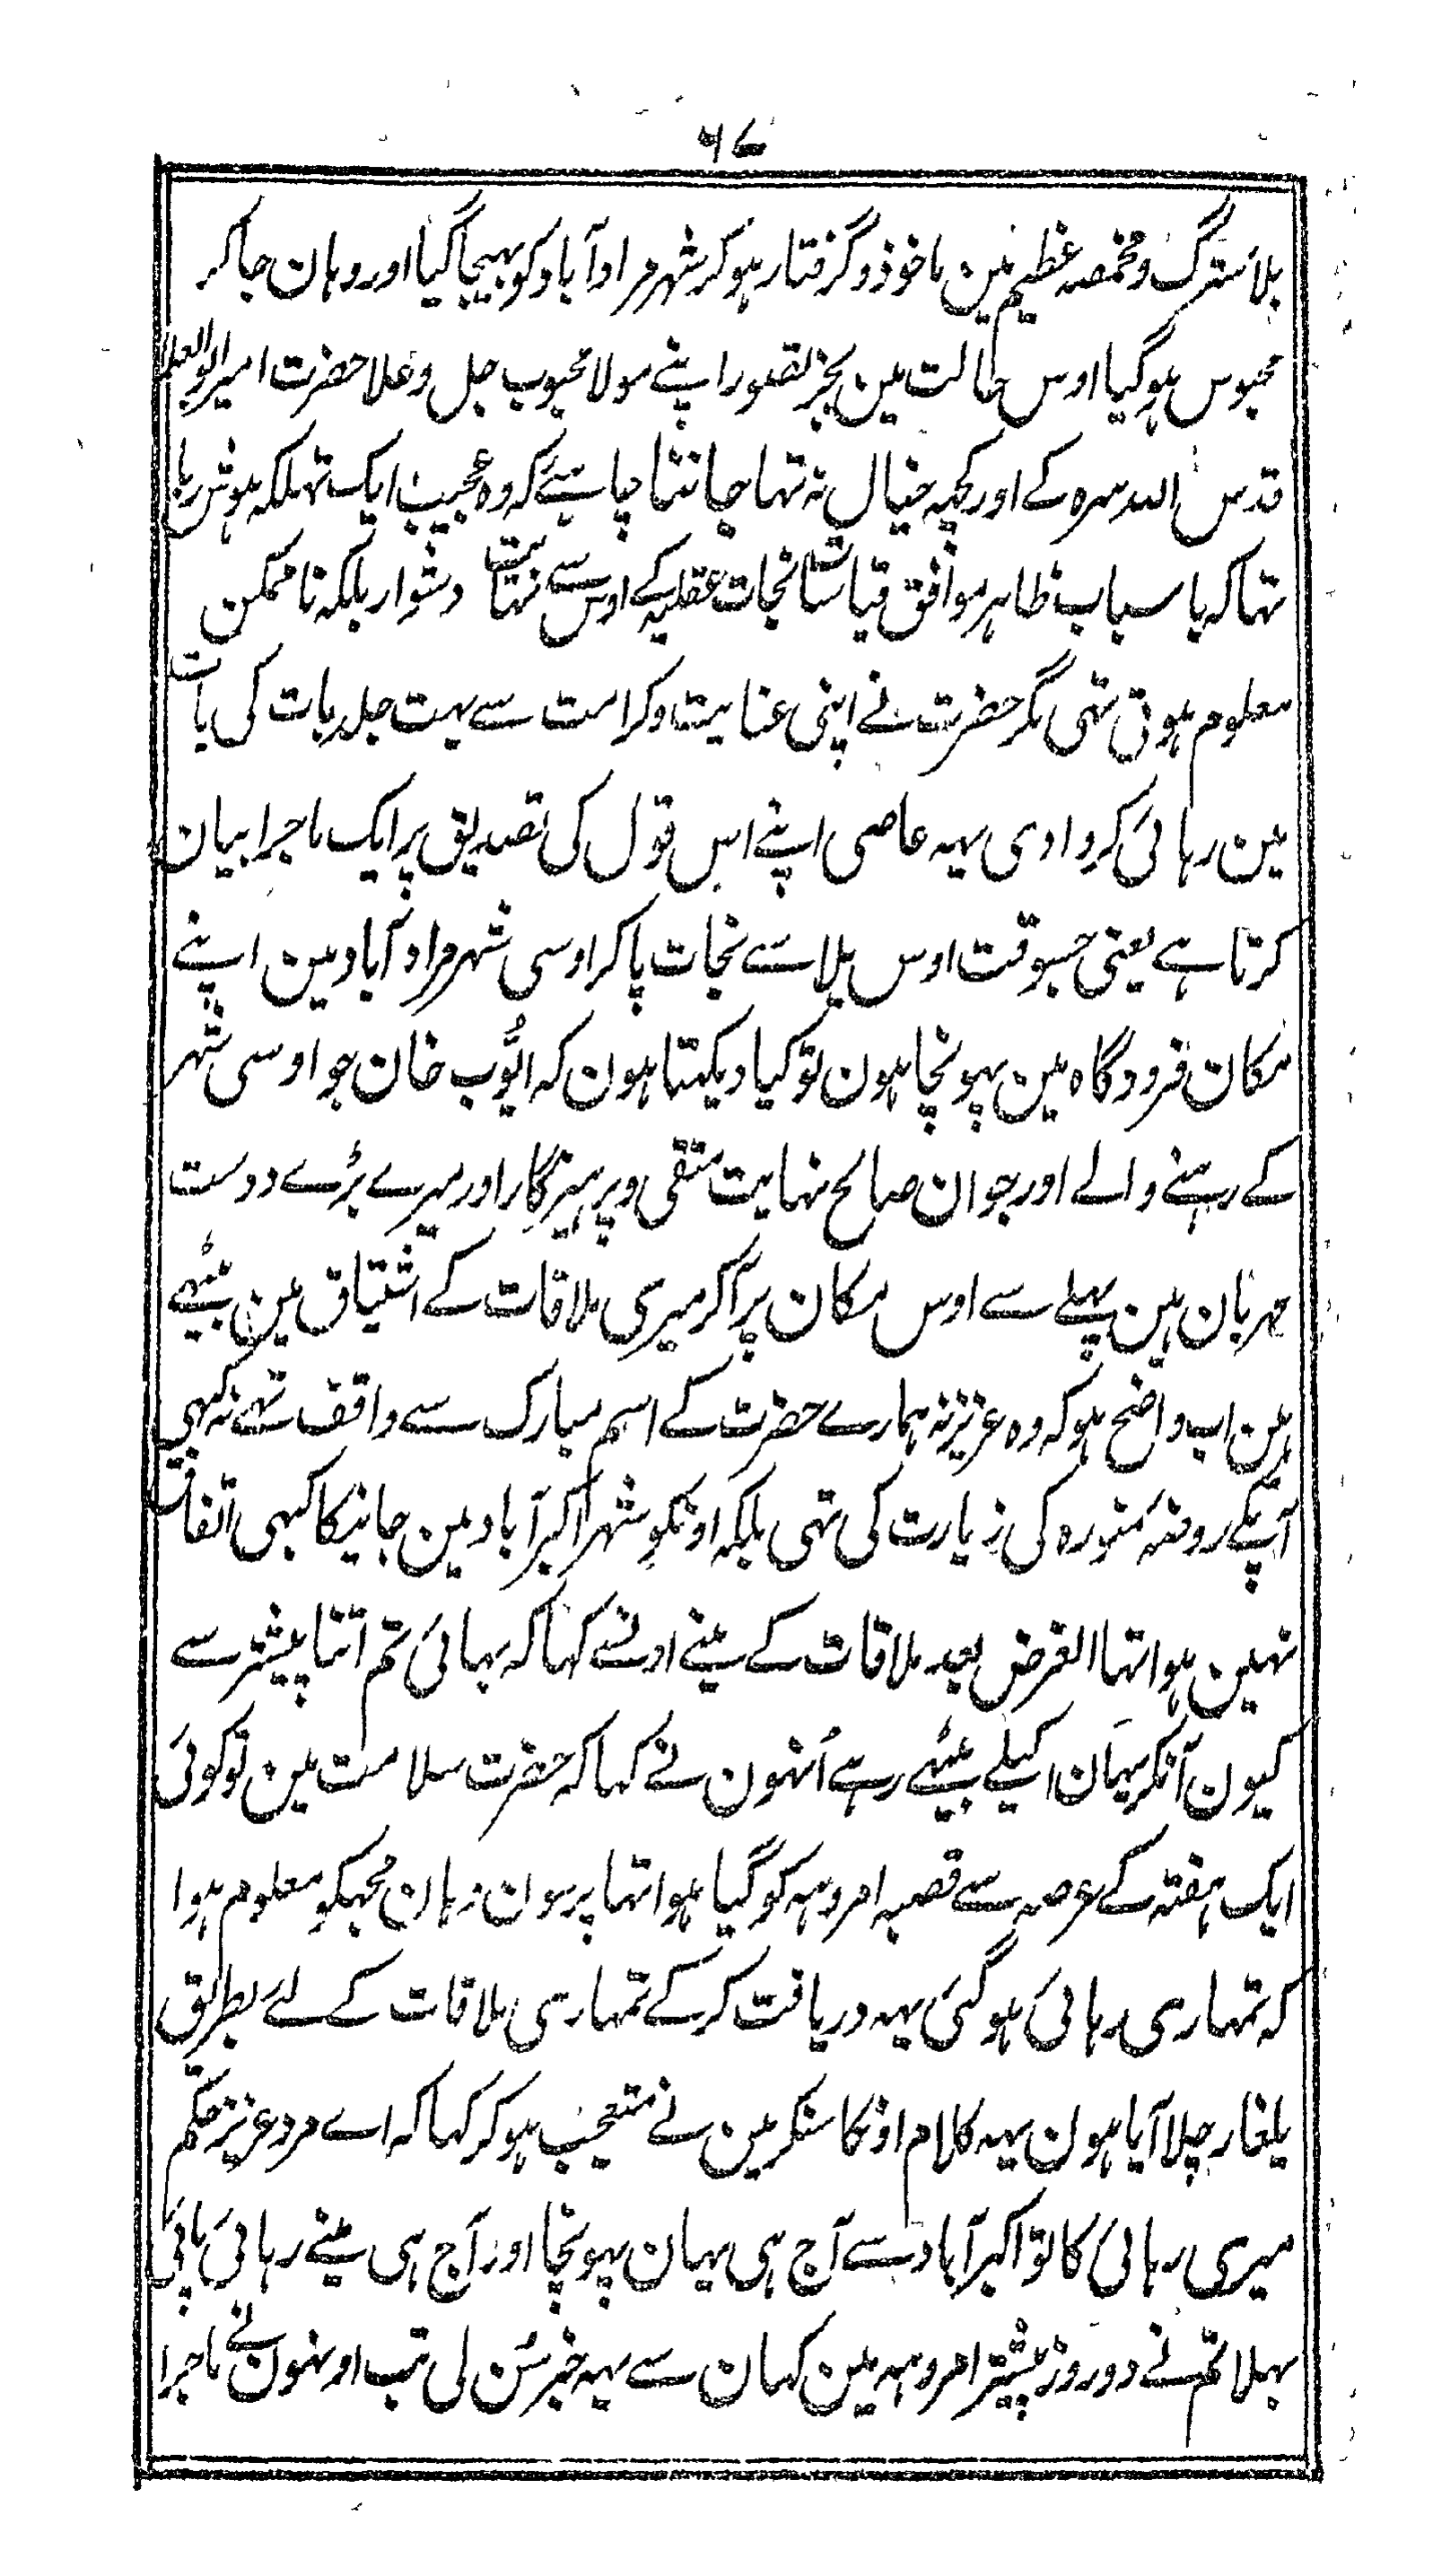 ۶۷
بلاٸسترگ و مخمصہ عظیم مین ماخوذ و گرفتار ہوکر شہر مرادآباد کو بہیجا گیا اور وہان جاکر
محبوس ہوگیا اوس حالت مین بجز تصور اپنے مولا محبوب جل و علا حضرت امیر ابوالعلا
قدس اللہ سرہ کے اور کچہ خیال نہ تہا جاننا چاہیٔے کہ وہ عجیب ایک تہلکہ ہوش ربا
تہا کہ باسباب ظاہر موافق قیاسات نجات عقلیہ کے اوس سے نہایت دشوار بلکہ ناممکن
معلوم ہوتی تہی مگر حضرت نے اپنی عنایت و کرامت سے بہت جلد بات کی بات
مین رہائی کروا دی یہہ عاصی اپنے اس قول کی تصدیق پر ایک ماجرا بیان
کرتا ہے یعنی جسوقت اوس بلا سے نجات پاکر اوسی شہر مرادآباد مین اپنے
مکان فرودگاہ مین پہونچا ہون تو کیا دیکہتا ہون کہ ایُّوب خان جو اوسی شہر
کے رہنے والے اور جوان صالح نہایت متقی و پرہیزگار اور میرے بڑے دوست
مہربان ہین پہلے سے اوس مکان پر آکر میری ملاقات کے اشتیاق مین بیٹہے
ہین اب واضح ہو کہ وہ عزیز نہ ہمارے حضرت کے اسم مبارک سے واقف تہے نہ کبہی
آپکے روضہٴ منورہ کی زیارت کی تہی بلکہ اونکو شہر اکبرآباد مین جانیکا کبہی اتفاق
نہین ہوا تہا الغرض بعد ملاقات کے مینے اونسے کہا کہ بہائی تم اتنا پیشتر سے
کیون آنکر یہان اکیلے بیٹہے رہے اُنہون نے کہا کہ حضرت سلامت مین تو کوئی
ایک ہفتہ کے عرصہ سے قصبہ امروہہ کو گیا ہوا تہا پرسون وہان مجہکو معلوم ہوا
کہ تمہاری رہائی ہوگئی یہہ دریافت کرکے تمہاری ملاقات کے لئے بطریق
یلغار چلا آیا ہون یہہ کلام اونکا سنکر مین نے متعجب ہوکر کہا کہ اے مرد عزیز حکم
میری رہائی کا تو اکبرآباد سے آج ہی یہان پہونچا اور آج ہی مینے رہائی پائی
بہلا تم نے دو روز پیشتر امروہہ مین کہان سے یہہ خبر سُن لی تب اونہون نے ماجرا